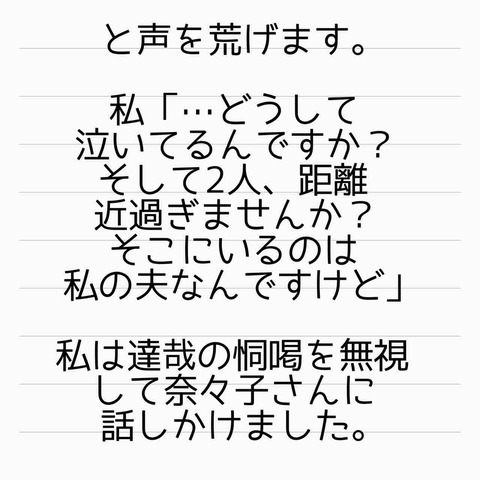 と声を荒げます。
私「…どうして
泣いてるんですか？
そして2人、距離
近過ぎませんか？
そこにいるのは
私の夫なんですけど」
私は達哉の恫喝を無視
して奈々子さんに
話しかけました。